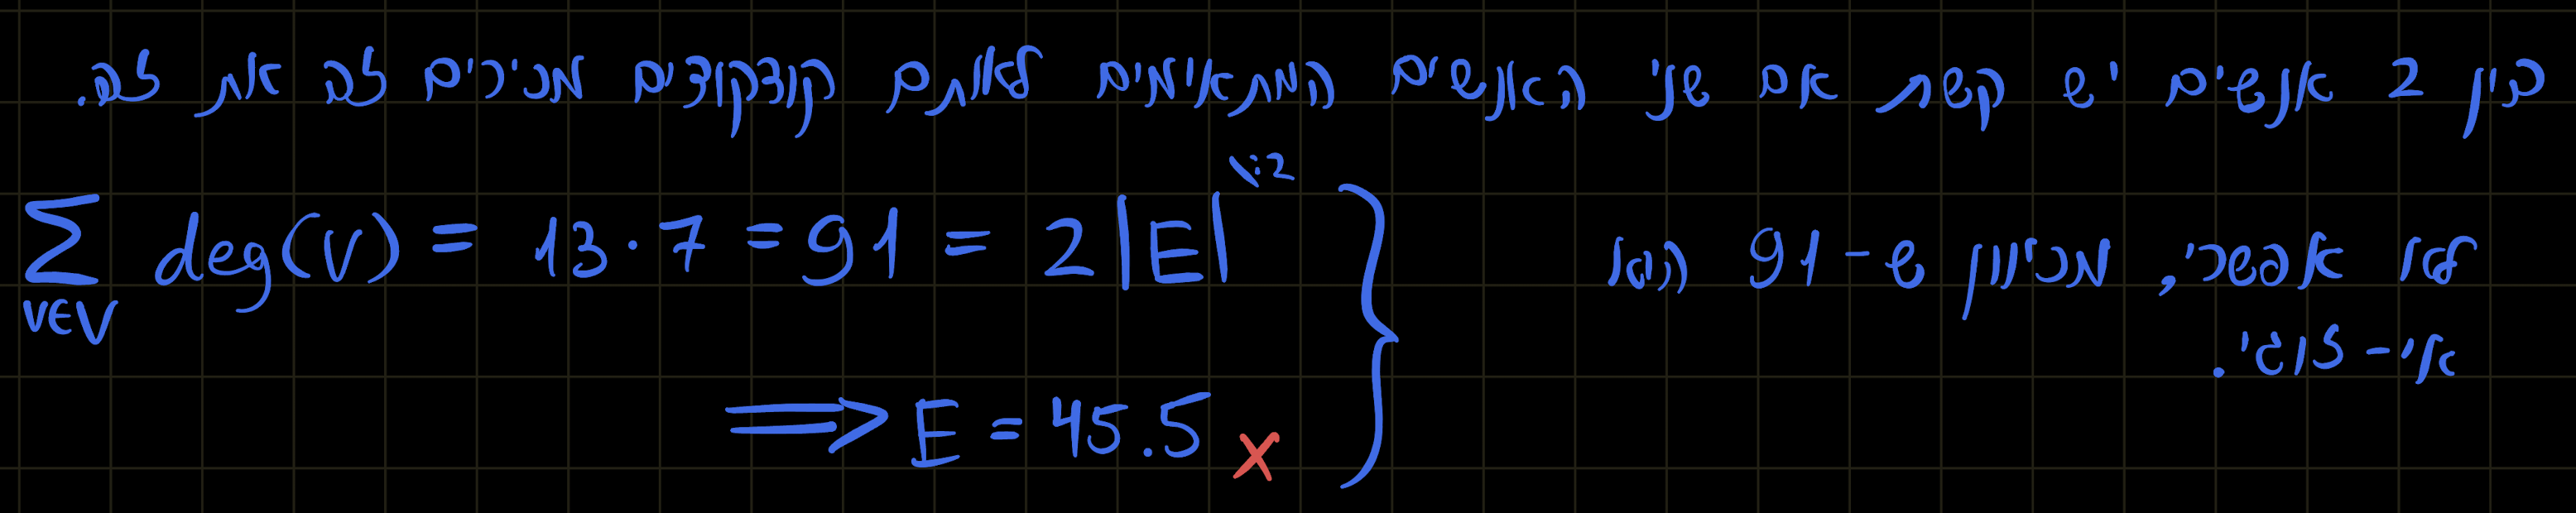 בין 2 אנשים יש קשת אם שני האנשים המתאימים לאותם הקודקודים מכירים זה את זה.
∑ deg(v) = 13·7 = 91 = 2|E| \:2
v∈V
לא אפשרי, מכיוון ש-91 הוא
אי-זוגי.
⟹ E = 45.5 x